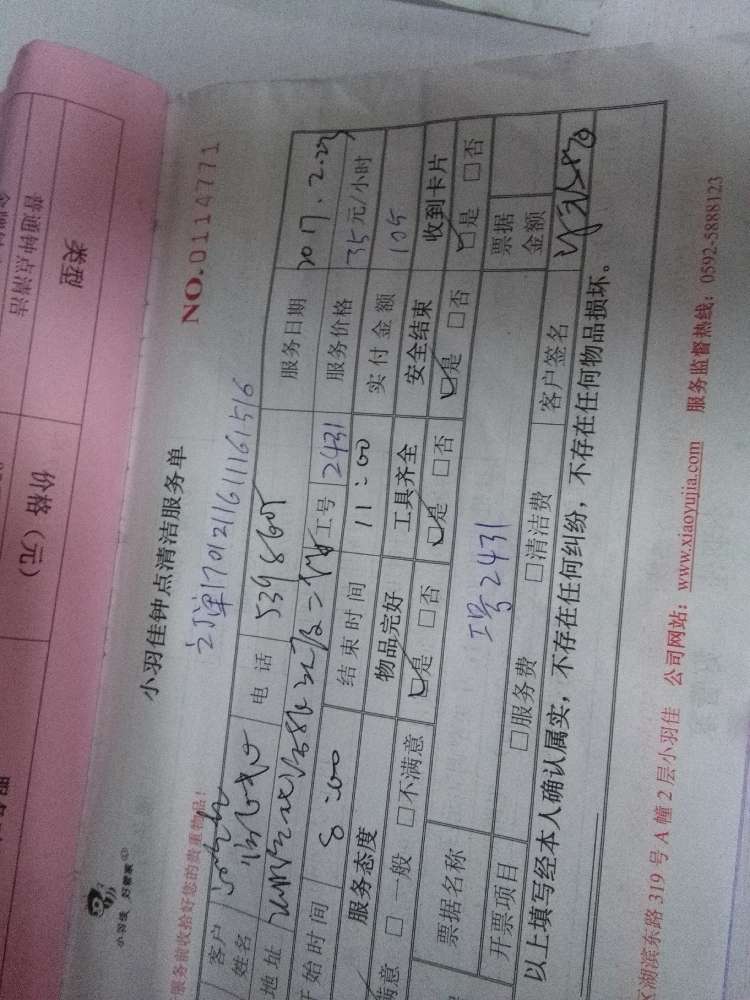 类型
价格（元）
普通钟点清洁
小羽佳
好管家
小羽佳钟点清洁服务单
NO.0114771
服务前收拾好您的贵重物品！
订单1701211611161516
客户姓名
电话
服务日期 2017.2.23
地址
工号 2431
服务价格 35元/小时
开始时间 8:00
结束时间 11:00
实付金额 105
服务态度
物品完好
工具齐全
安全结束
收到卡片
满意 □一般 □不满意
□是 □否
□是 □否
□是 □否
□是 □否
票据名称
工号2431
票据金额
开票项目
□服务费
□清洁费
客户签名
以上填写经本人确认属实，不存在任何纠纷，不存在任何物品损坏。
湖滨东路 319 号 A 幢 2 层小羽佳 公司网站：www.xiaoyujia.com 服务监督热线：0592-5888123